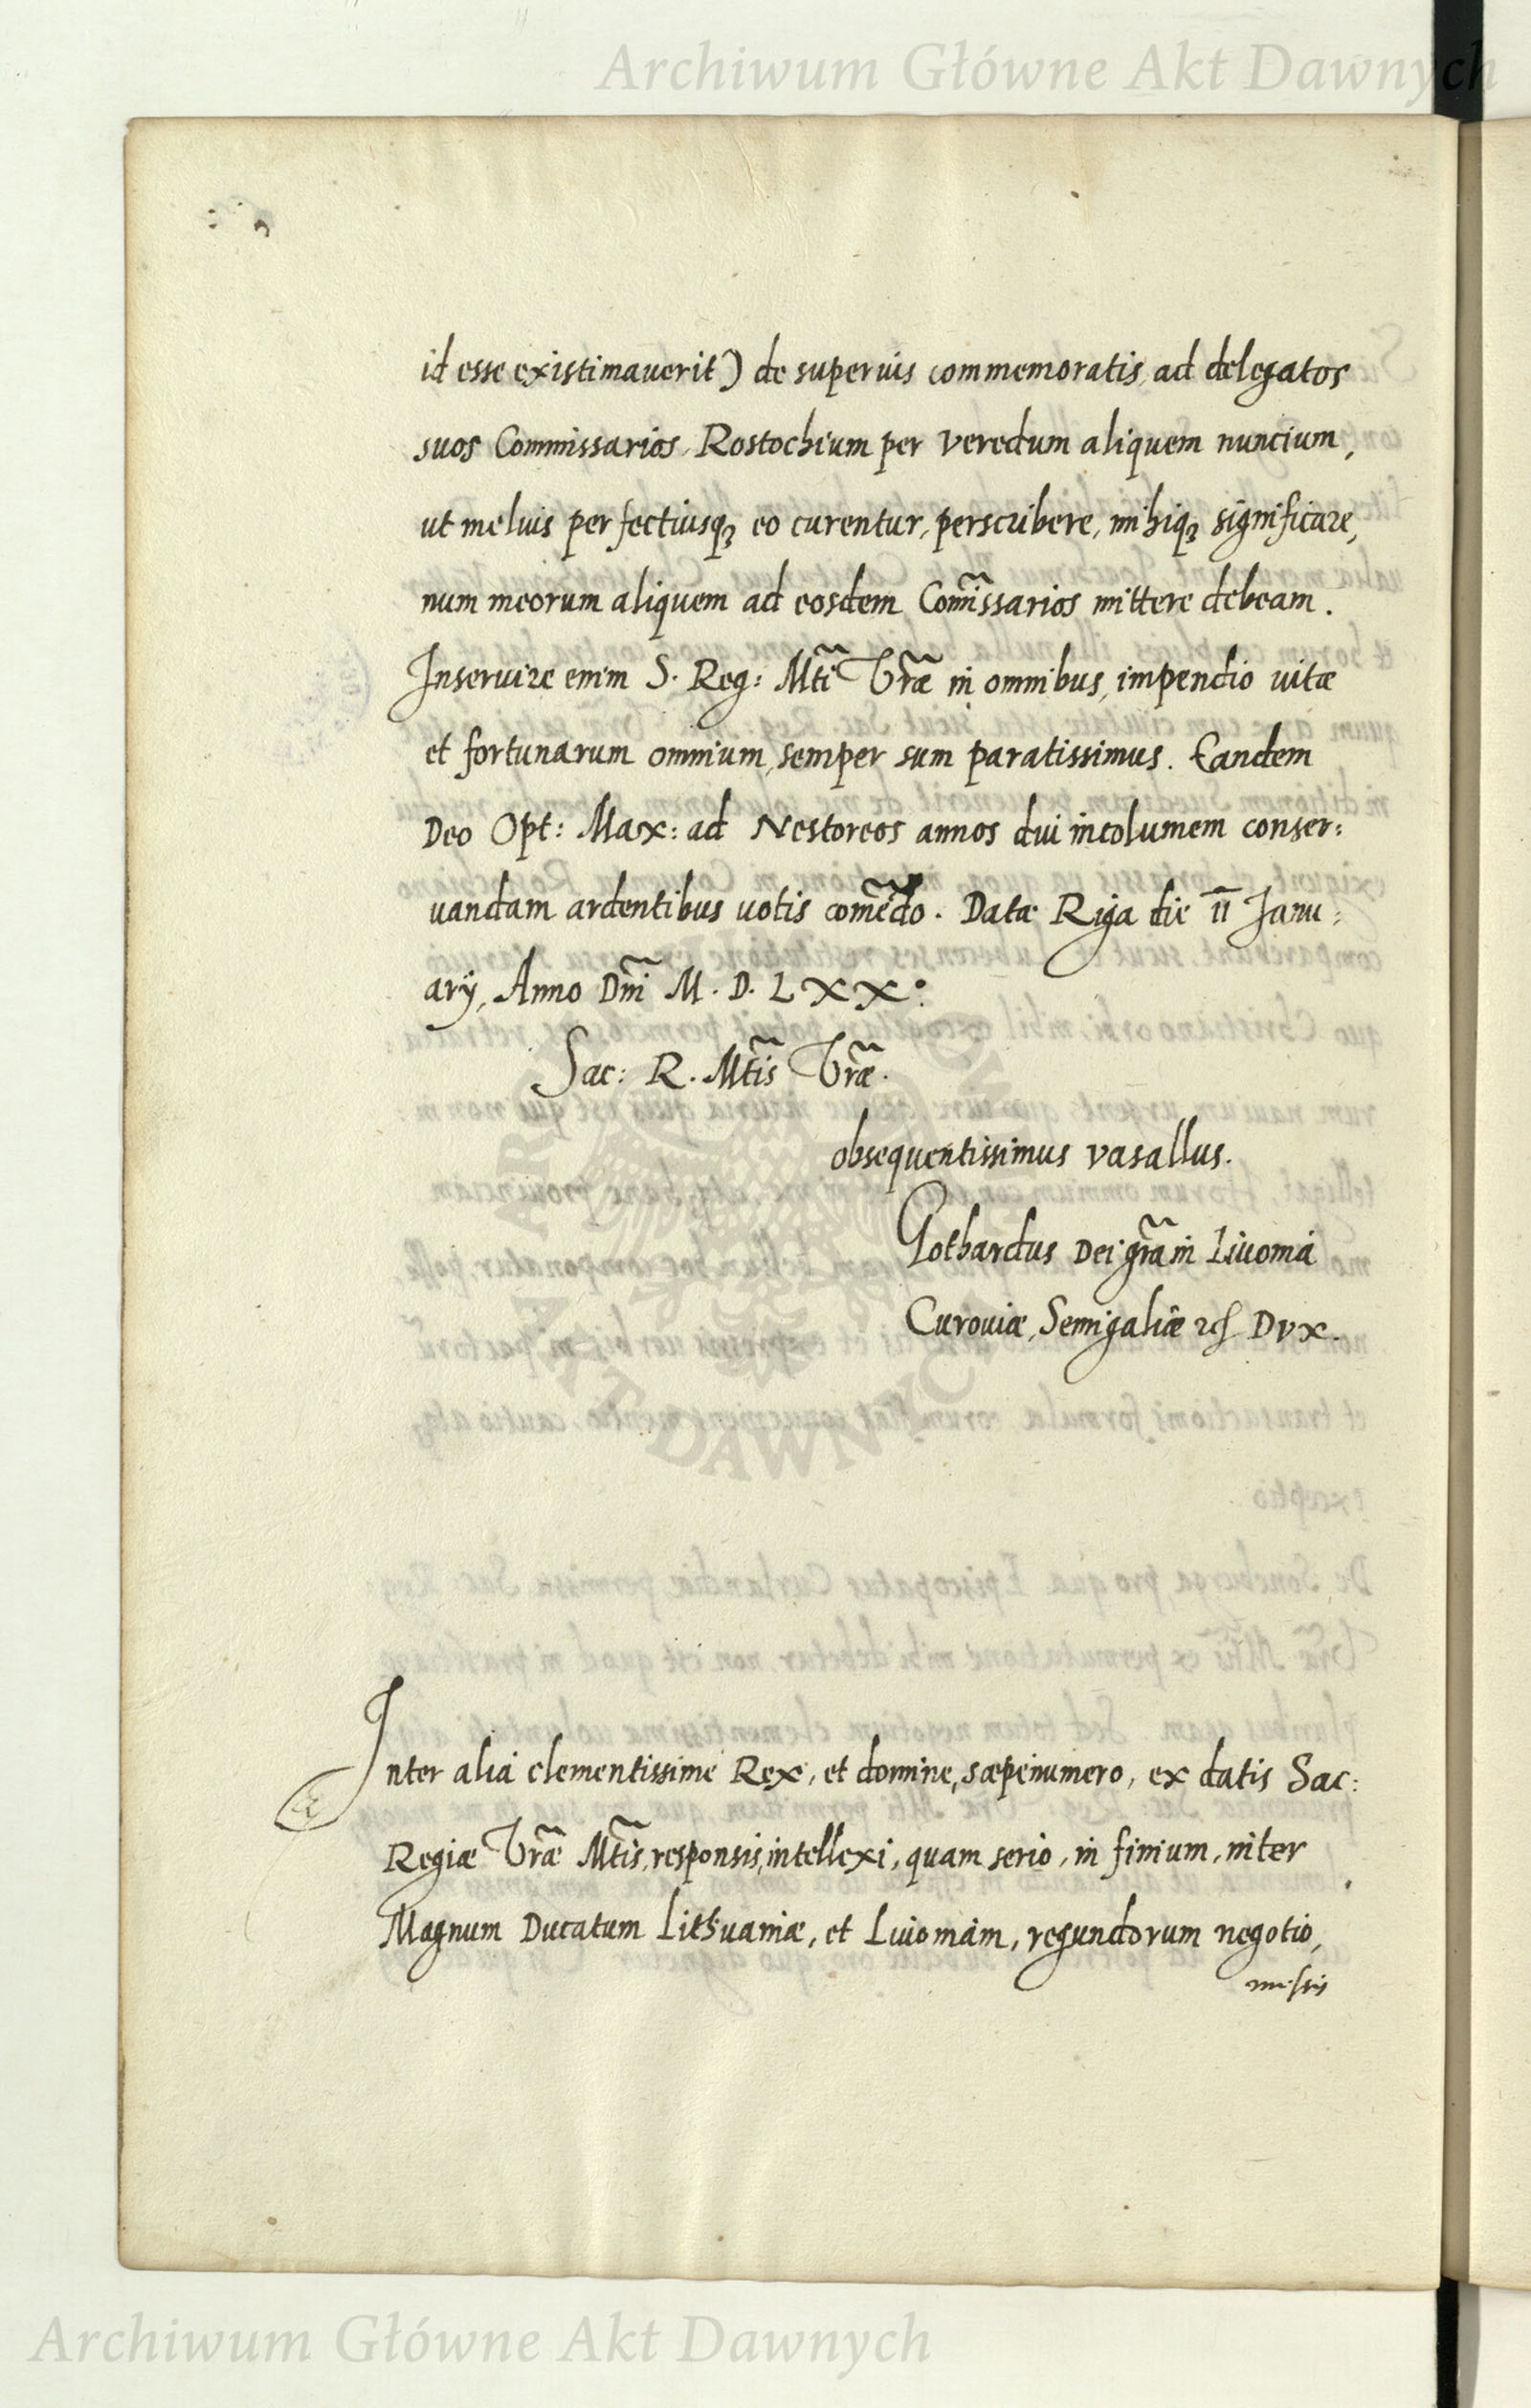 Archiwum Główne Akt Dawnych
id esse existimauerit) de superius commemoratis, ad delegatos
suos Commissarios, Rostochium per veredum aliquem nuncium,
ut melius perfectiusq; eo curentur, perscribere, mihiq; significare,
num meorum aliquem ad eosdem Com̃issarios mittere debeam.
Inseruire enim S. Reg: Mti̴ Vr̃æ in omnibus, impendio uitæ
et fortunarum omnium, semper sum paratissimus. Eandem
Deo Opt: Max: ad Nestoreos annos diu incolumem conser:
uandam ardentibus uotis com̃ẽdo. Datæ Riga die ii Janu:
arÿ, Anno Dm̃i M. D. LXX°:
Sac: R. Mt̃is Vr̃æ.
obsequentissimus vasallus.
Gothardus Dei gr̃a in Liuonia
Curoniæ, Semigaliæ &c Dvx.
Inter alia clementissime Rex, et domine, sæpenumero, ex datis Sac:
Regiæ Vr̃æ Mt̃is, responsis, intellexi, quam serio, in finium, inter
Magnum Ducatum Lithuaniæ, et Liuoniam, regundorum negotio,
missis
ARCHIWUM GŁÓWNE AKT DAWNYCH
Archiwum Główne Akt Dawnych